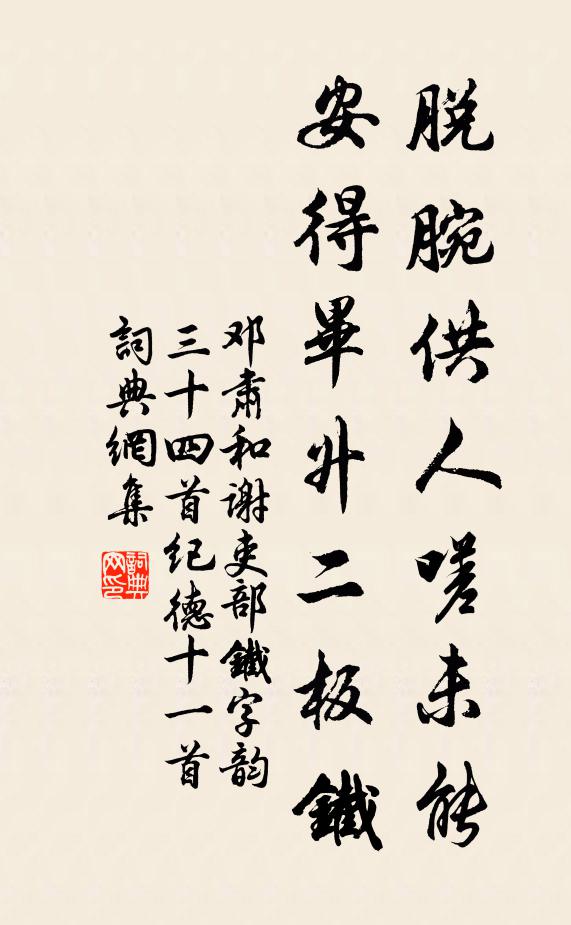 脱腕供人嗟未能
安得畢升二板鐵
邓肃和谢吏部鐵字韵
三十四首纪德十一首
詞典網集
詞典網印